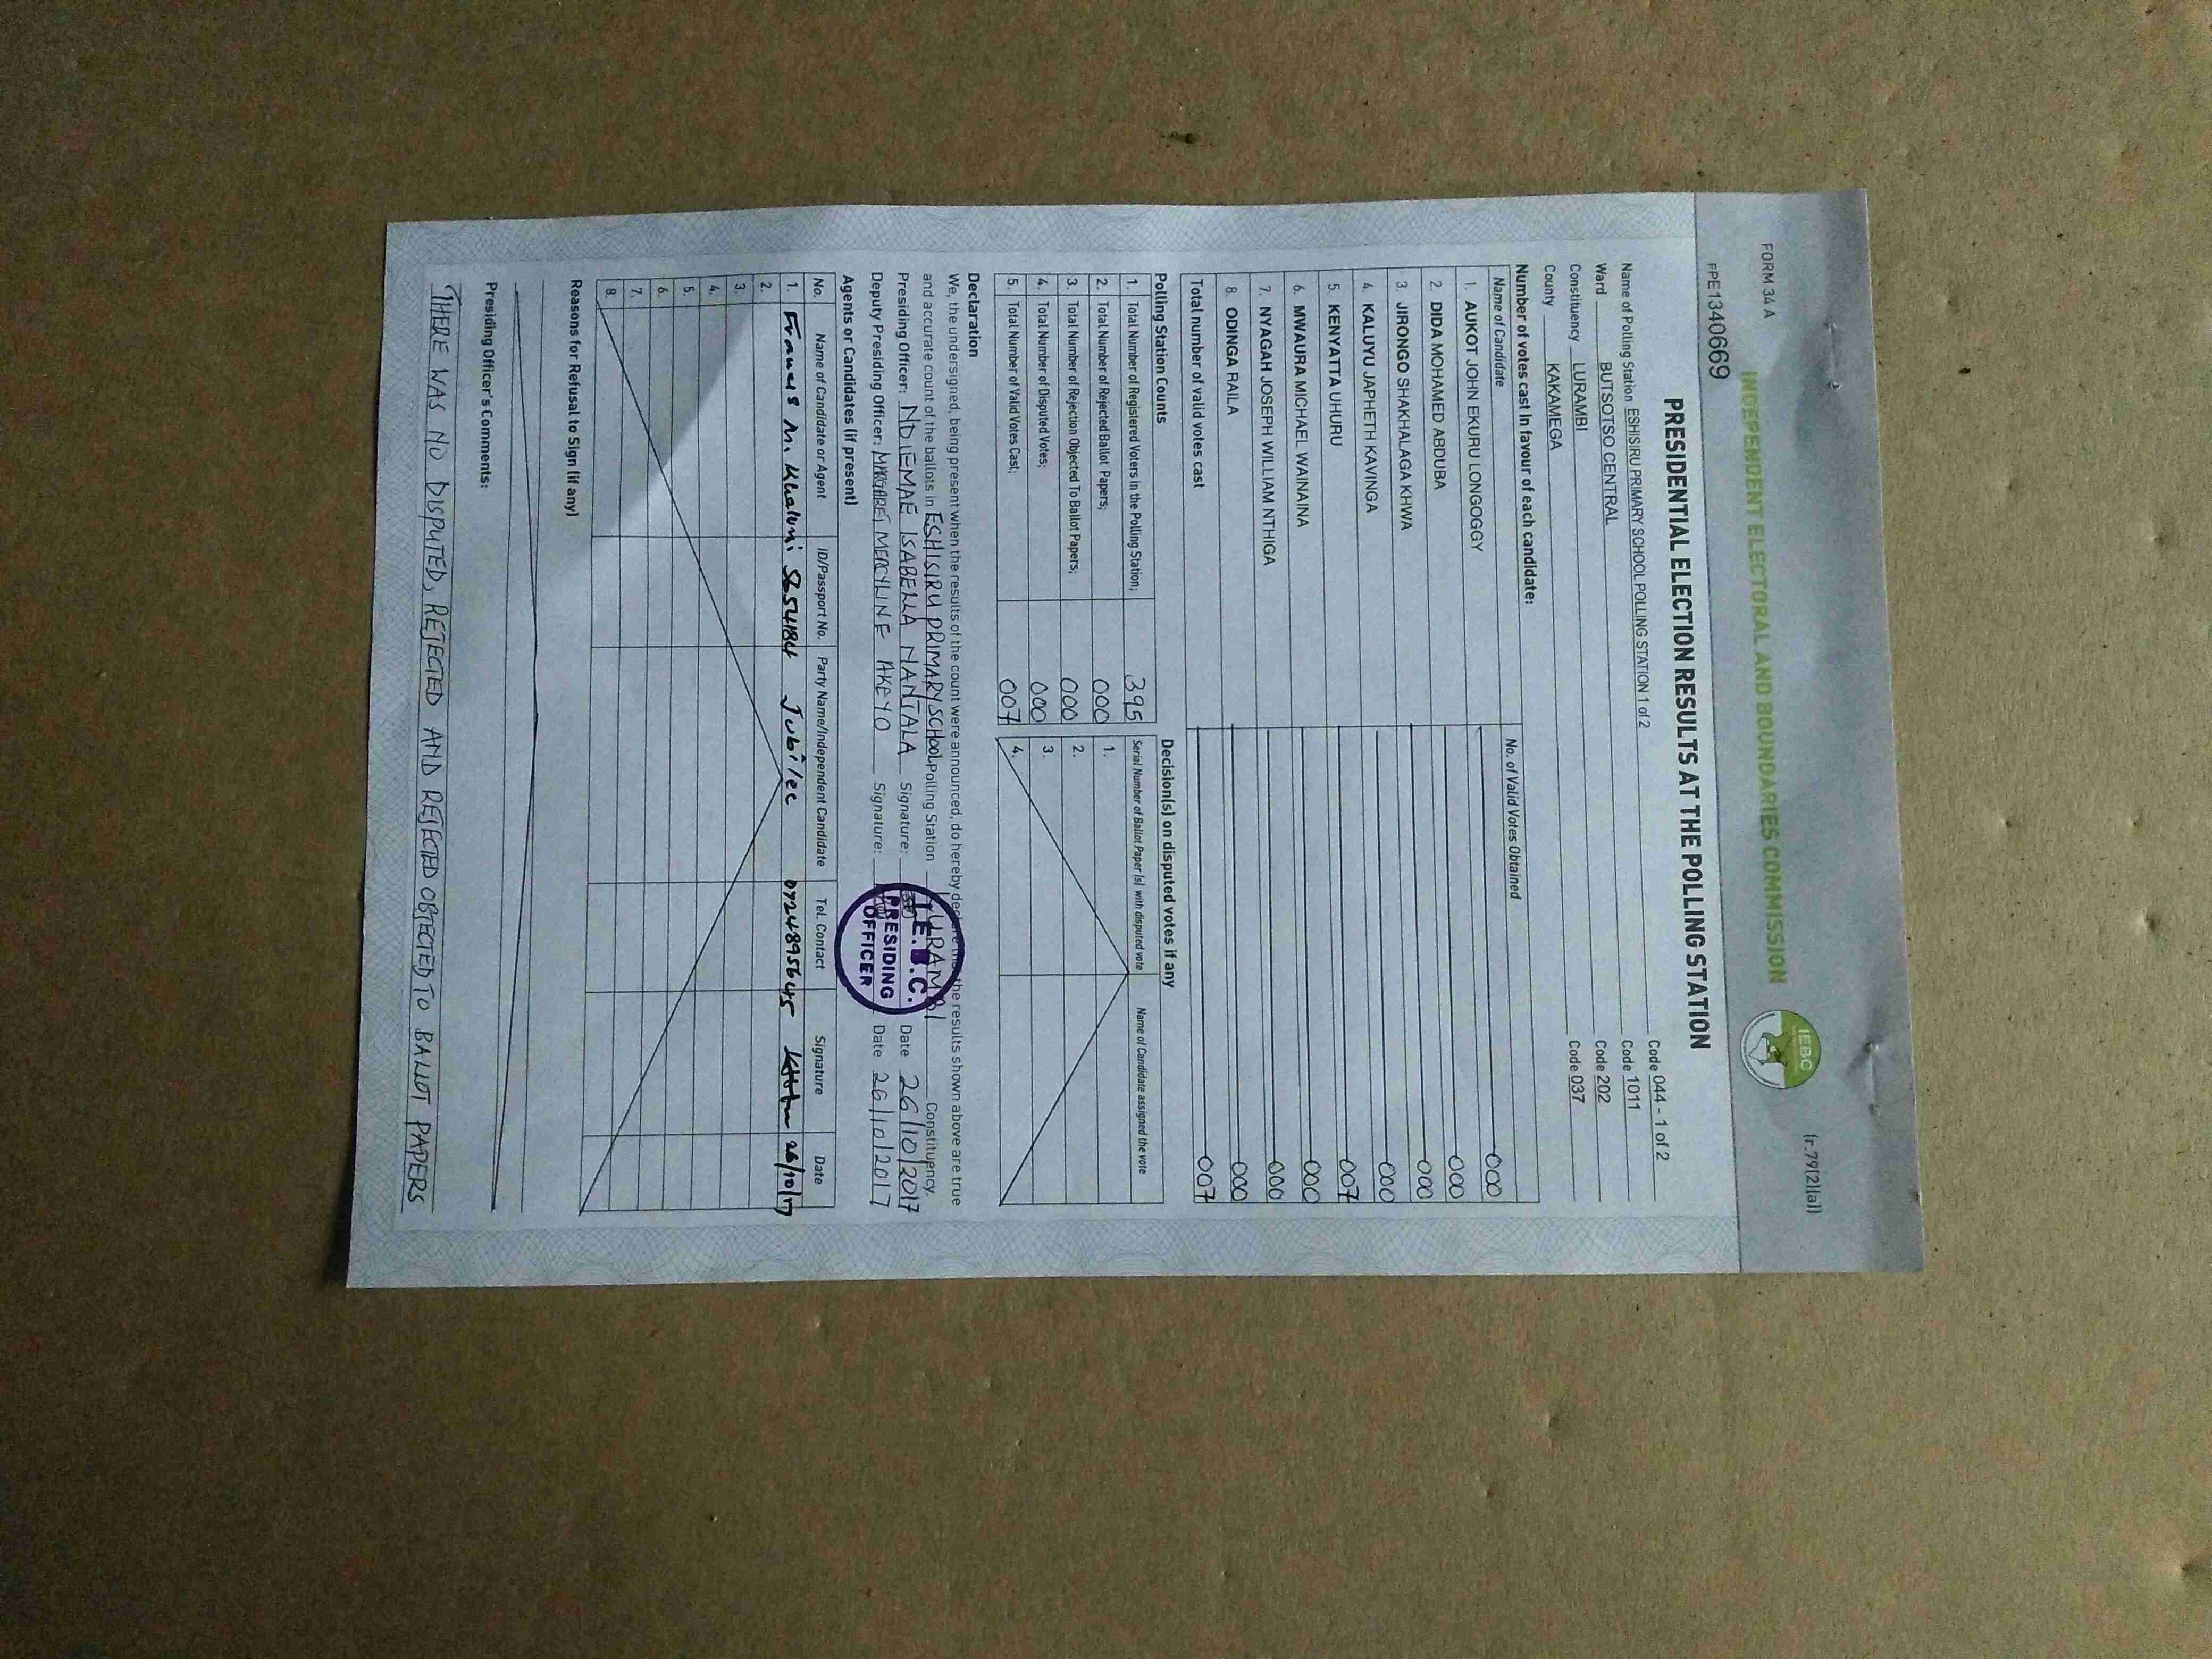 FORM 34 A
(r.79(2)(a))
INDEPENDENT ELECTORAL AND BOUNDARIES COMMISSION
IEBC
FPE1340669
PRESIDENTIAL ELECTION RESULTS AT THE POLLING STATION
Name of Polling Station ESHISIRU PRIMARY SCHOOL POLLING STATION 1 of 2 Code 044 - 1 of 2
Ward BUTSOTSO CENTRAL Code 1011
Constituency LURAMBI Code 202
County KAKAMEGA Code 037
Number of votes cast in favour of each candidate:
Name of Candidate No. of Valid Votes Obtained
1. AUKOT JOHN EKURU LONGOGGY 000
2. DIDA MOHAMED ABDUBA 000
3. JIRONGO SHAKHALAGA KHWA 000
4. KALUYU JAPHETH KAVINGA 000
5. KENYATTA UHURU 007
6. MWAURA MICHAEL WAINAINA 000
7. NYAGAH JOSEPH WILLIAM NTHIGA 000
8. ODINGA RAILA 000
Total number of valid votes cast 007
Polling Station Counts
1. Total Number of Registered Voters in the Polling Station; 395
2. Total Number of Rejected Ballot Papers; 000
3. Total Number of Rejection Objected To Ballot Papers; 000
4. Total Number of Disputed Votes; 000
5. Total Number of Valid Votes Cast; 007
Decision(s) on disputed votes if any
Serial Number of Ballot Paper (s) with disputed vote Name of Candidate assigned the vote
1.
2.
3.
4.
Declaration
We, the undersigned, being present when the results of the count were announced, do hereby declare that the results shown above are true
and accurate count of the ballots in ESHISIRU PRIMARY SCHOOL Polling Station LURAMBI Constituency.
Presiding Officer: NDIEMAE ISABELLA NANJALA Signature: Date 26/10/2017
Deputy Presiding Officer: MARGARET MERCYLINE AKEYO Signature: Date 26/10/2017
I.E.B.C.
PRESIDING
OFFICER
Agents or Candidates (if present)
No. Name of Candidate or Agent ID/Passport No. Party Name/Independent Candidate Tel. Contact Signature Date
1. Francis M. Jubilee 0724895645 26/10/17
2.
3.
4.
5.
6.
7.
8.
Reasons for Refusal to Sign (if any)
Presiding Officer's Comments:
THERE WAS NO DISPUTED, REJECTED AND REJECTED OBJECTED TO BALLOT PAPERS